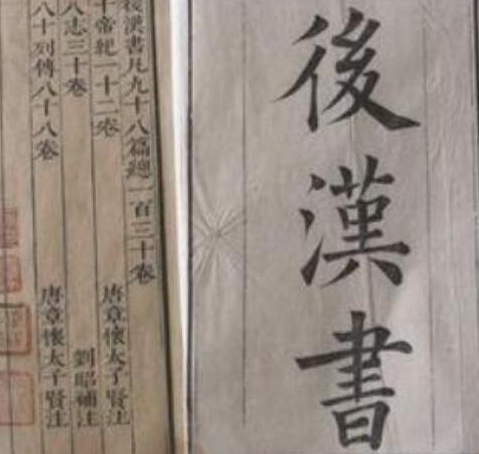 後漢書
後漢書凡九十八篇總一百三十卷
十帝紀一十二卷 唐章懷太子賢注
八志三十卷 劉昭補注
八十列傳八十八卷 唐章懷太子賢注